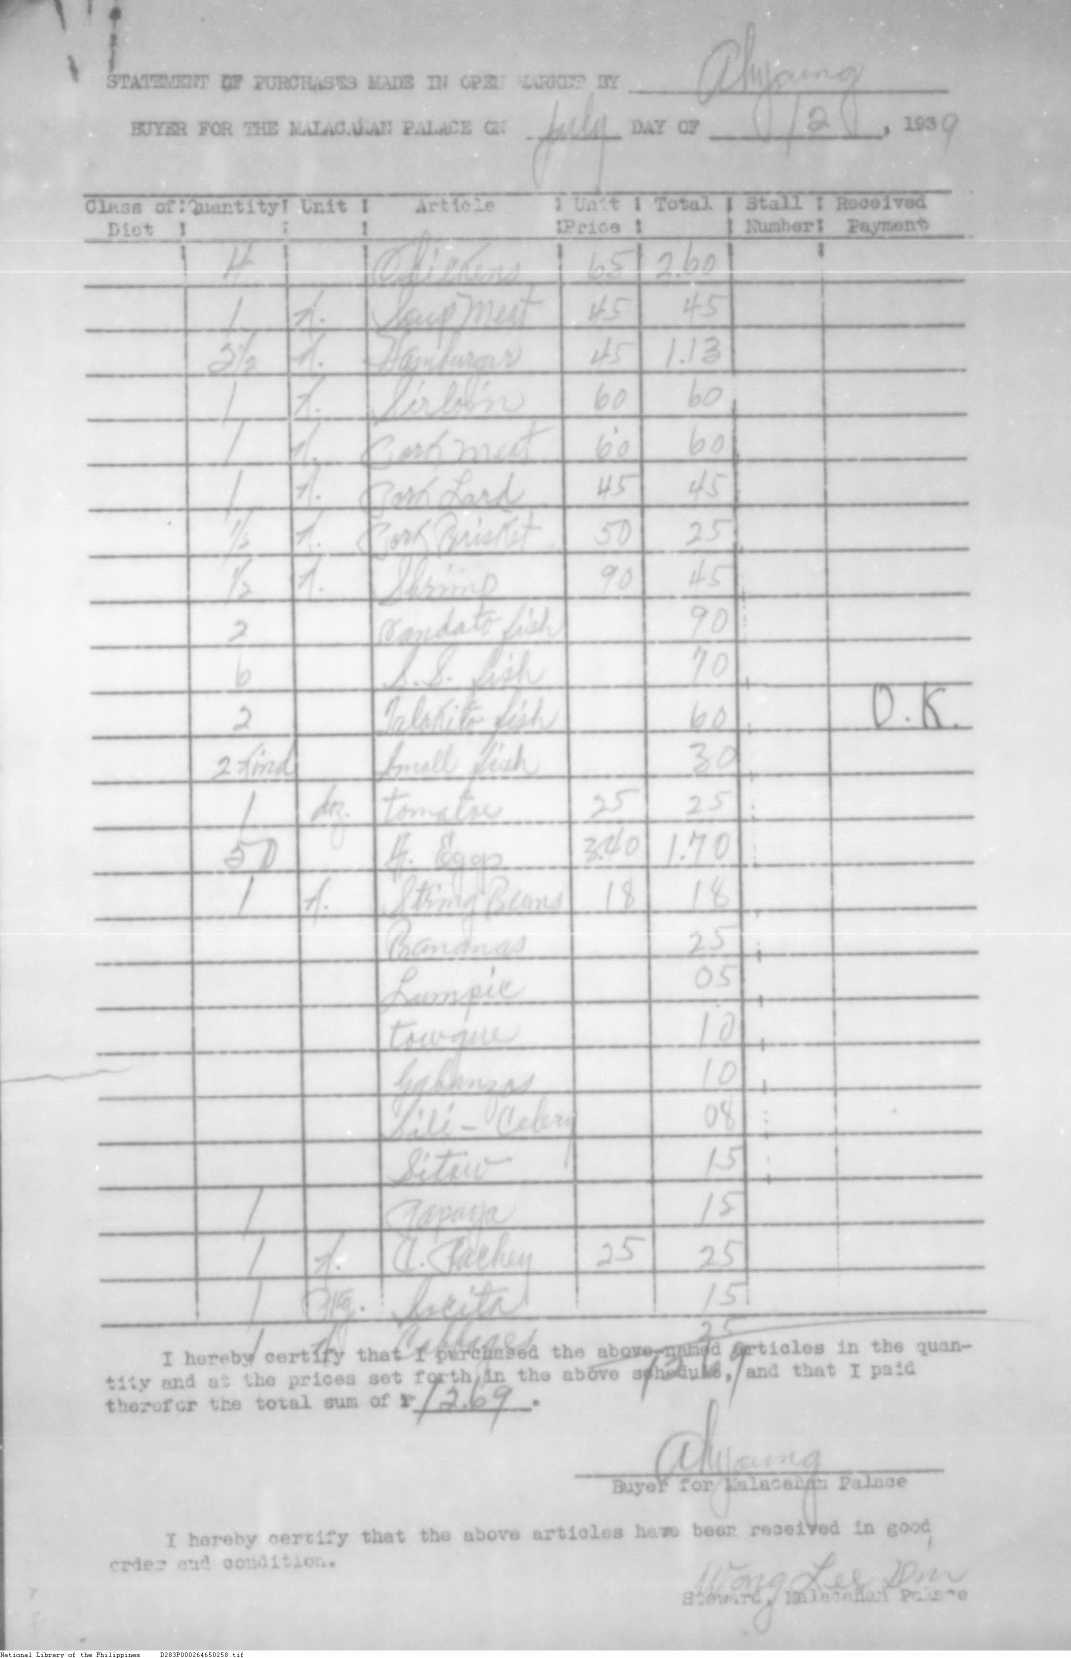 STATEMENT OF PURCHASES MADE IN OPEN MARKET BY Ahyoung
BUYER FOR THE MALACAÑAN PALACE ON July DAY OF 12, 1939
Class of Diet Quantity Unit Article Unit Price Total Stall Number Received Payment
4 Chickens 65 2.60
1 k. Soup Meat 45 45
2½ k. Hamburger 45 1.13
1 k. Sirloin 60 60
1 k. Pork meat 60 60
1 k. Pork Lard 45 45
½ k. Pork Brisket 50 25
½ k. Shrimp 90 45
2 Kandato fish 90
6 S.S. fish 70
2 Talakito fish 60 O.K.
2 kind Small fish 30
1 dz. tomatoe 25 25
50 H. Eggs 3.40 1.70
1 k. String Beans 18 18
Bananas 25
Lumpie 05
towgue 10
Gabanzos 10
Sili - Celery 08
Sitaw 15
1 Papaya 15
1 k. C. Pachey 25 25
1 Pkg. 15
1 k. Cabbages 25
12.69
I hereby certify that I purchased the above-named articles in the quan-
tity and at the prices set forth in the above schedule, and that I paid
therefor the total sum of ₱ 12.69.
Ahyoung
Buyer for Malacañan Palace
I hereby certify that the above articles have been received in good
order and condition.
Wong Lee
Steward, Malacañan Palace
National Library of the Philippines D283P000264650258.tif